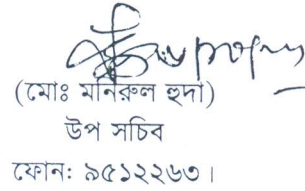 (মোঃ মনিরুল হুদা)
উপ সচিব
ফোন: ৯৫১২২৬৩।